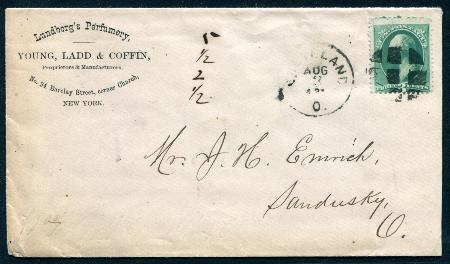 Lundborg's Perfumery,
YOUNG, LADD & COFFIN,
Proprietors & Manufacturers,
No. 24 Barclay Street, corner Church,
NEW YORK.
1/2
2
1/2
AUG
O.
Mr. J. H. Emrich,
Sandusky,
O.